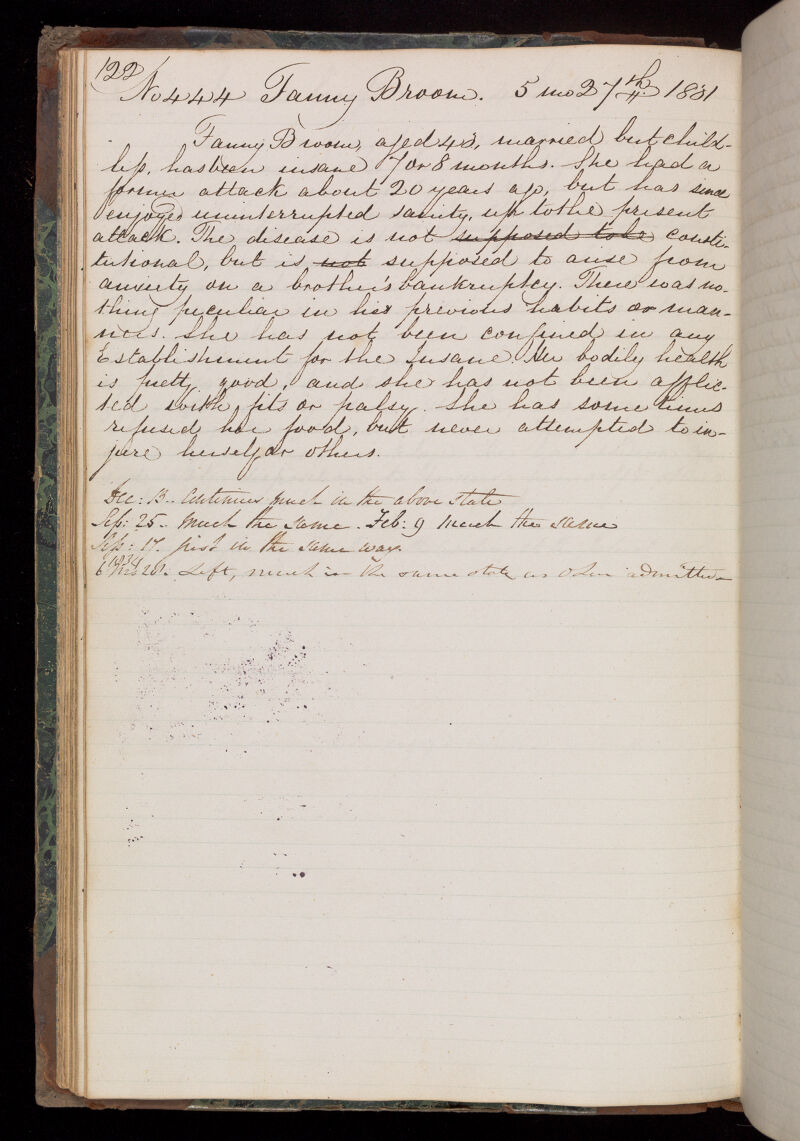 122
No 444 Fanny Broom. 5 mo 27th 1831
Fanny Broom, aged 43, married but child-
less, has been insane 7 or 8 months. She had a
former attack about 20 years ago, but has since
enjoyed uninterrupted sanity, up to the present
attack. The disease is not supposed to be consti-
tutional, but is not supposed to arise from
anxiety on a brother's bankruptcy. There was no-
thing peculiar in her previous habits or man-
ners. She has not been confined in any
Establishment for the Insane. Her bodily health
is pretty good, and she has not been afflic-
ted with fits or palsy. She has some times
refused her food, but never attempted to in-
jure herself or others.
Dec: 13. Continues much in the above state
Sep: 25. Much the same. Feb: 9 Much the same
Sep: 17. just in the same way.
1834
6 mo 20. Left, much in the same state as when admitted